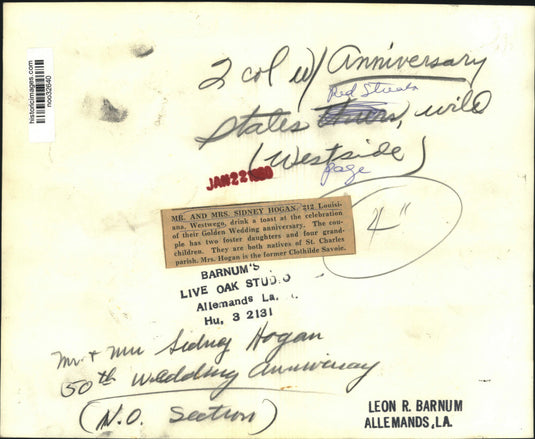 historicimages.com
noo32640
2 col w/ Anniversary
Red Streak
States, wild
(Westside)
page
JAN 22 1960
4"
MR. AND MRS. SIDNEY HOGAN, 212 Louisi-
ana, Westwego, drink a toast at the celebration
of their Golden Wedding anniversary. The cou-
ple has two foster daughters and four grand-
children. They are both natives of St. Charles
parish. Mrs. Hogan is the former Clothilde Savoie.
BARNUM'S
LIVE OAK STUDIO
Allemands La.
Hu, 3 2131
Mr. + Mrs Sidney Hogan
50th Wedding Anniversary
(N.O. Section)
LEON R. BARNUM
ALLEMANDS, LA.